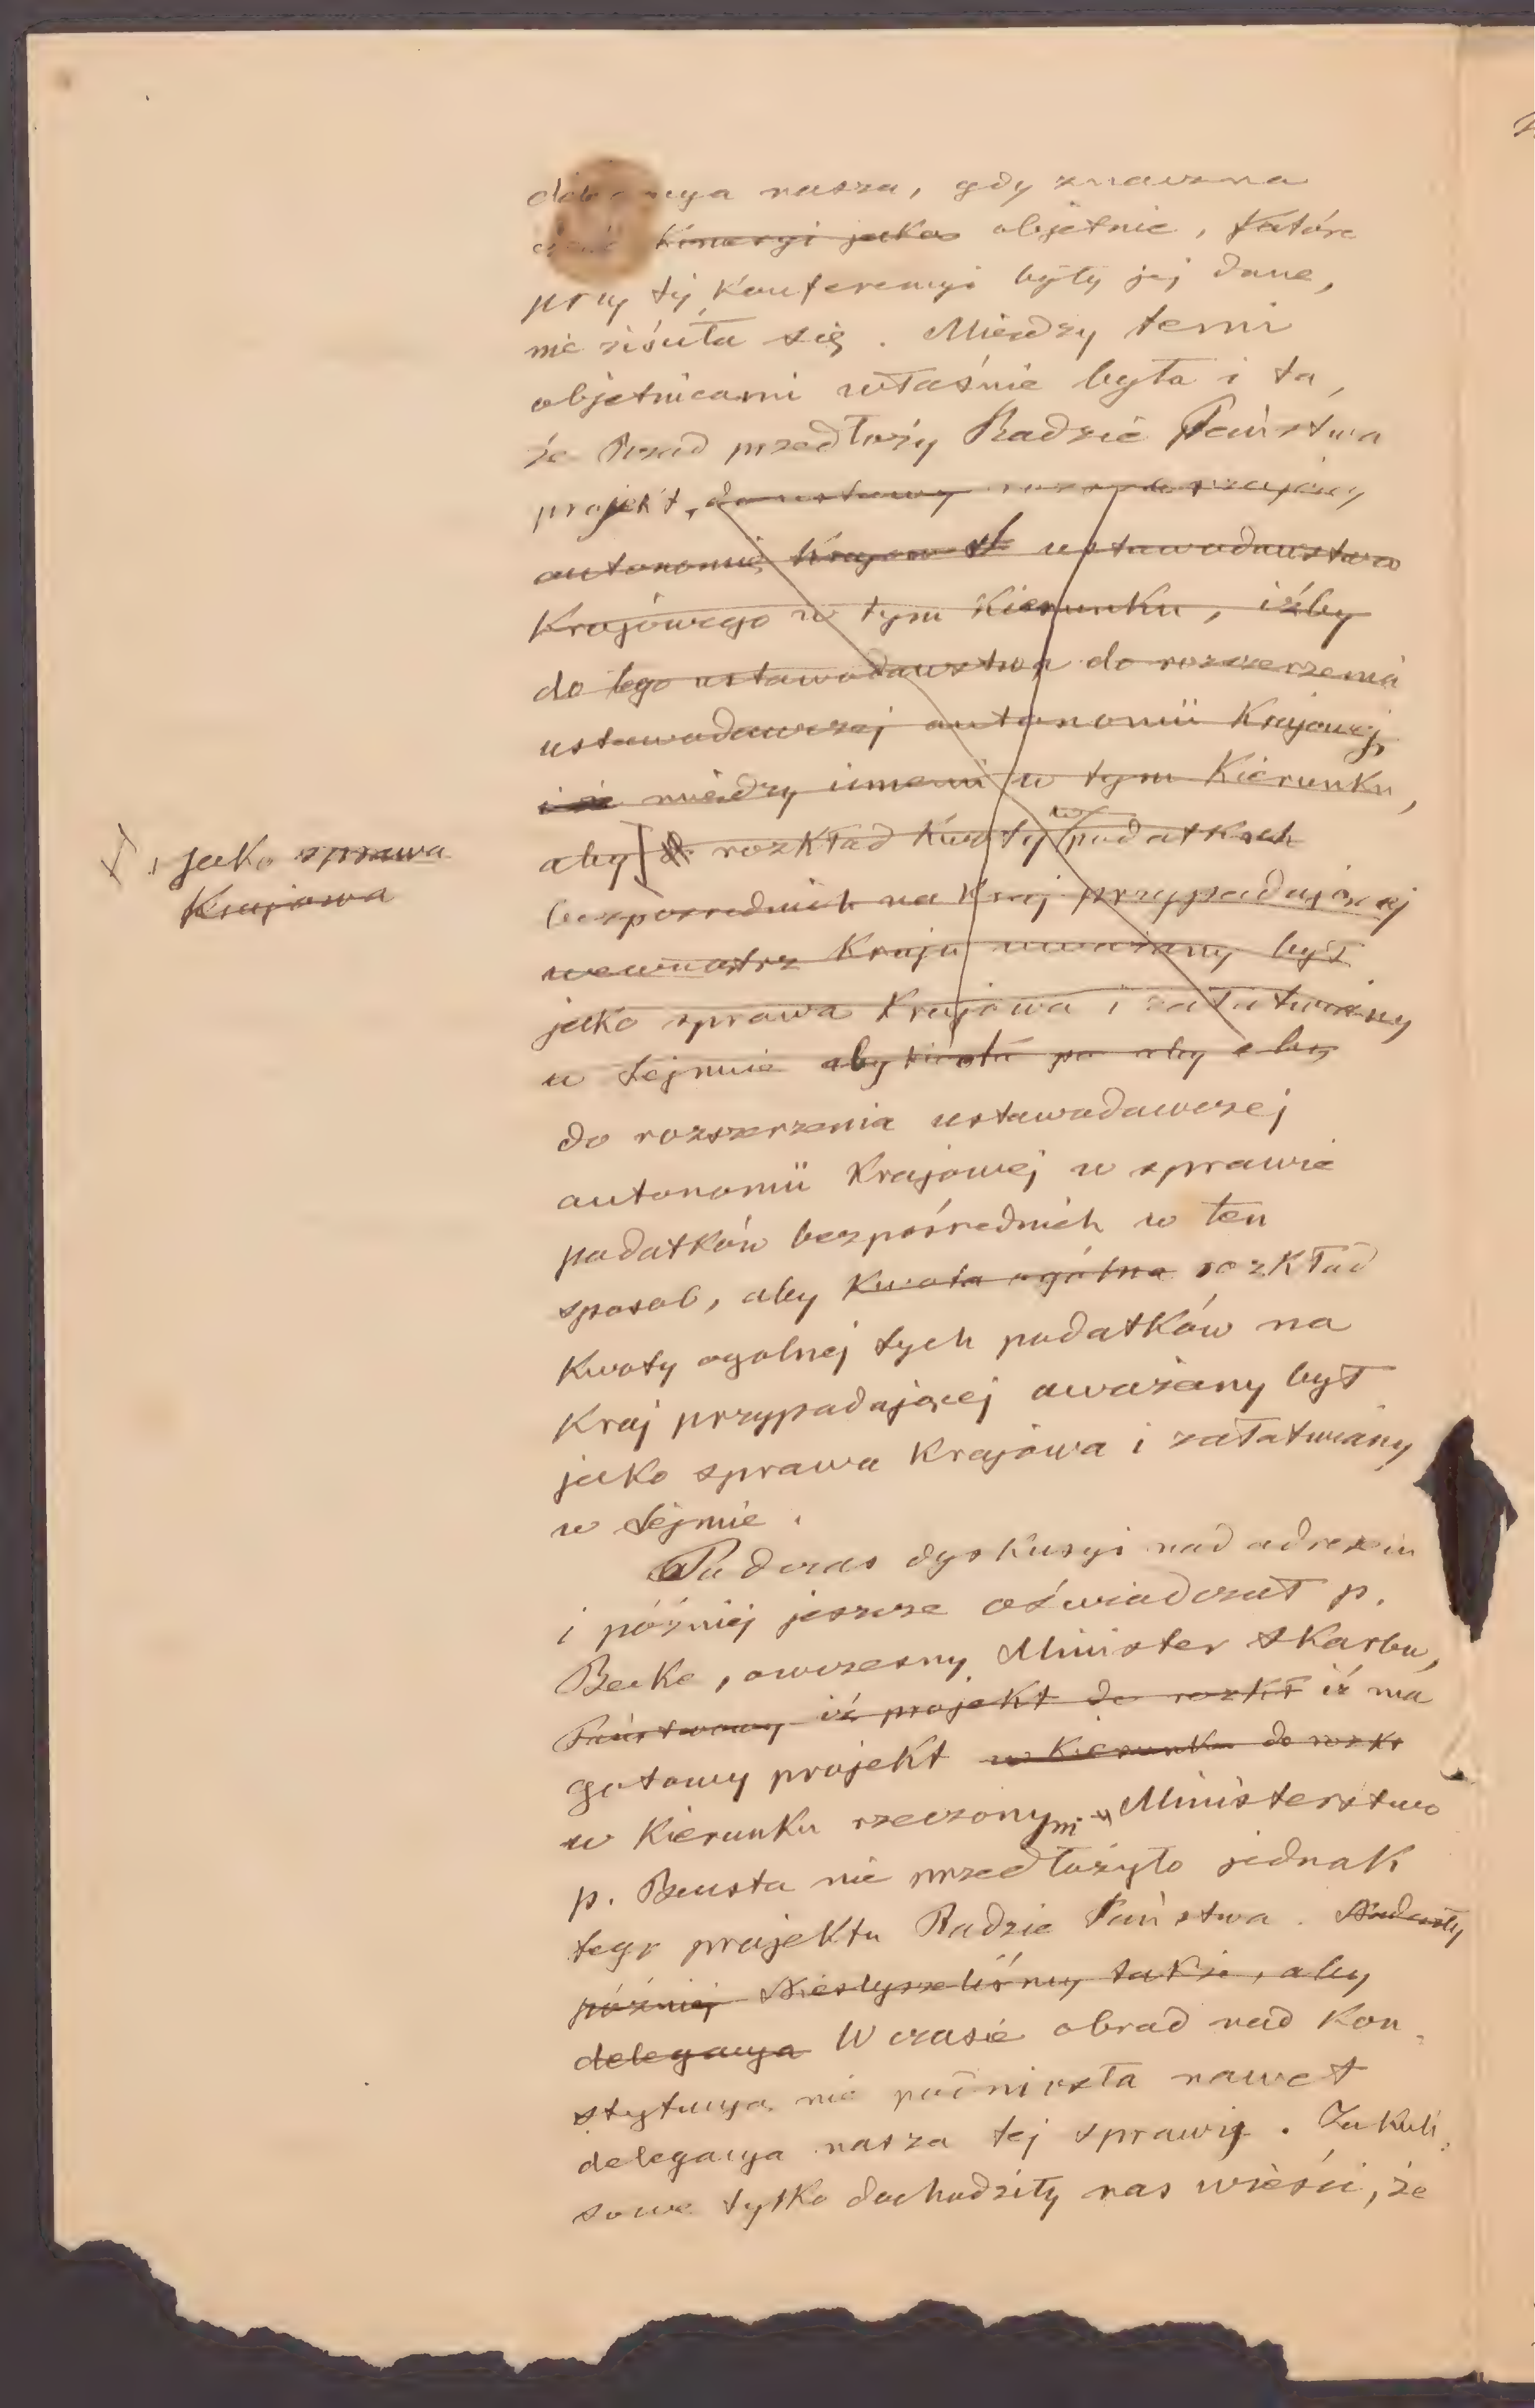 delegacya nasza, gdy znaczna
część Koncesyi jako obietnic, które
przy tej Konferencyi były jej dane,
nie ziściła się. Miedzy temi
objetnicami właśnie była i ta,
że Rząd przedłoży Radzie Państwa
projekt, do ustawy
autonomię Krajow ustawodawstwa
Krajowego w tym Kierunku, iżby
do tego ustawodawstwa do rozszerzenia
ustawodawczej autonomii Krajowej,
i że miedzy innemi w tym Kierunku,
aby rozkład Kwoty w podatkach
, jako sprawa
Krajowa
bezposrednich na Kraj przypadającej
wewnątrz Kraju uważany był
jako sprawa Krajowa i załatwiany
w Sejmie aby Kwota po aby aby
do rozszerzenia ustawodawczej
autonomii Krajowej w sprawie
podatków bezpośrednich w ten
sposob, aby Kwota ogólna rozkład
Kwoty ogolnej tych podatków na
Kraj przypadającej uważany był
jako sprawa Krajowa i załatwiany
w Sejmie.
Podczas dyskusyi nad adresem
i póżniej jeszcze oświadczał p.
Becke, owczesny Minister Skarbu,
Państwowy iż projekt do rozkł iż ma
gotowy projekt w Kierunku do rozkł
w Kierunku rzeczonym. Ministerstwo
p. Beusta nie przedłożyło jednak
tego projektu Radzie Państwa.
póżniej Niesłyszeliśmy także, aby
delegacya W czasie obrad nad Kon-
stytucya nie podniosła nawet
delegacya nasza tej sprawy. Zakuli-
sowe tylko dochodziły nas wieści, że